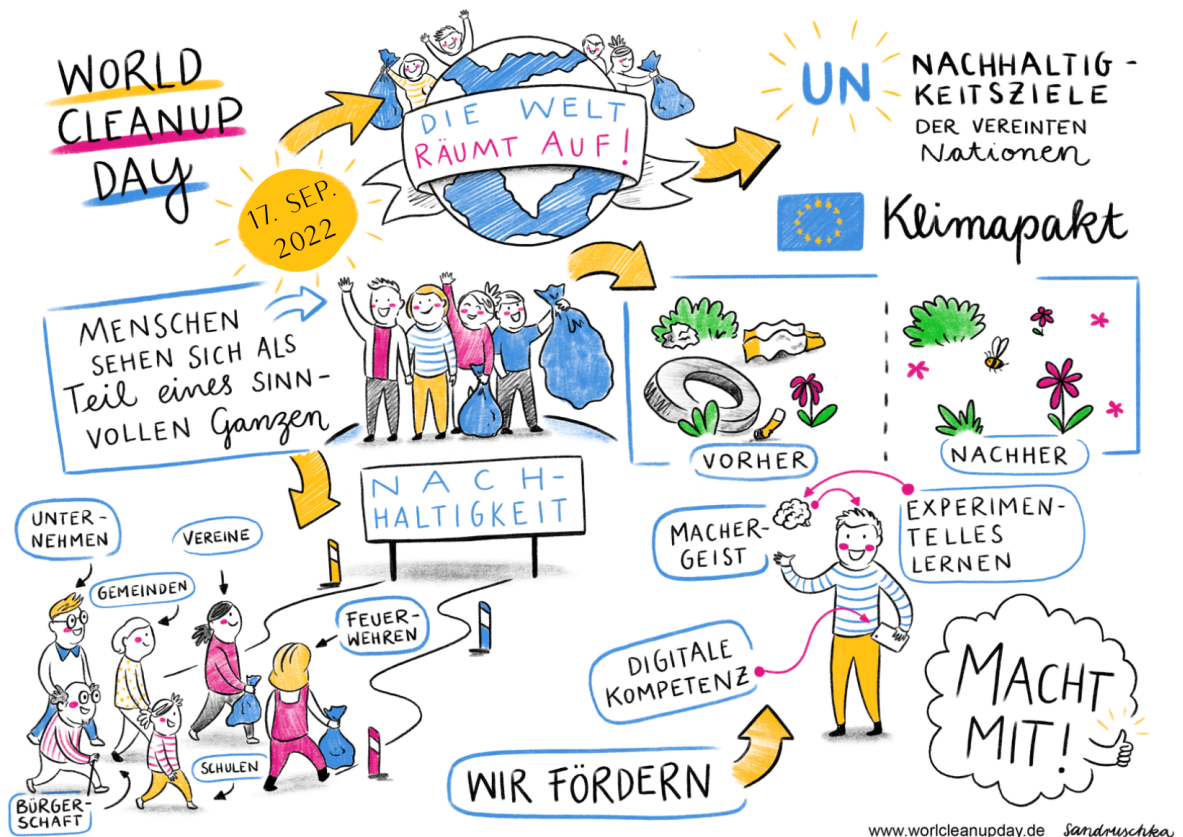 WORLD
CLEANUP
DAY
17. SEP.
2022
DIE WELT
RÄUMT AUF!
UN
NACHHALTIG-
KEITSZIELE
DER VEREINTEN
Nationen
Klimapakt
MENSCHEN
SEHEN SICH ALS
Teil eines SINN-
VOLLEN Ganzen
VORHER
NACHHER
NACH-
HALTIGKEIT
UNTER-
NEHMEN
VEREINE
GEMEINDEN
FEUER-
WEHREN
SCHULEN
BÜRGER-
SCHAFT
MACHER-
GEIST
EXPERIMEN-
TELLES
LERNEN
DIGITALE
KOMPETENZ
WIR FÖRDERN
MACHT
MIT!
www.worlcleanupday.de
Sandruschka